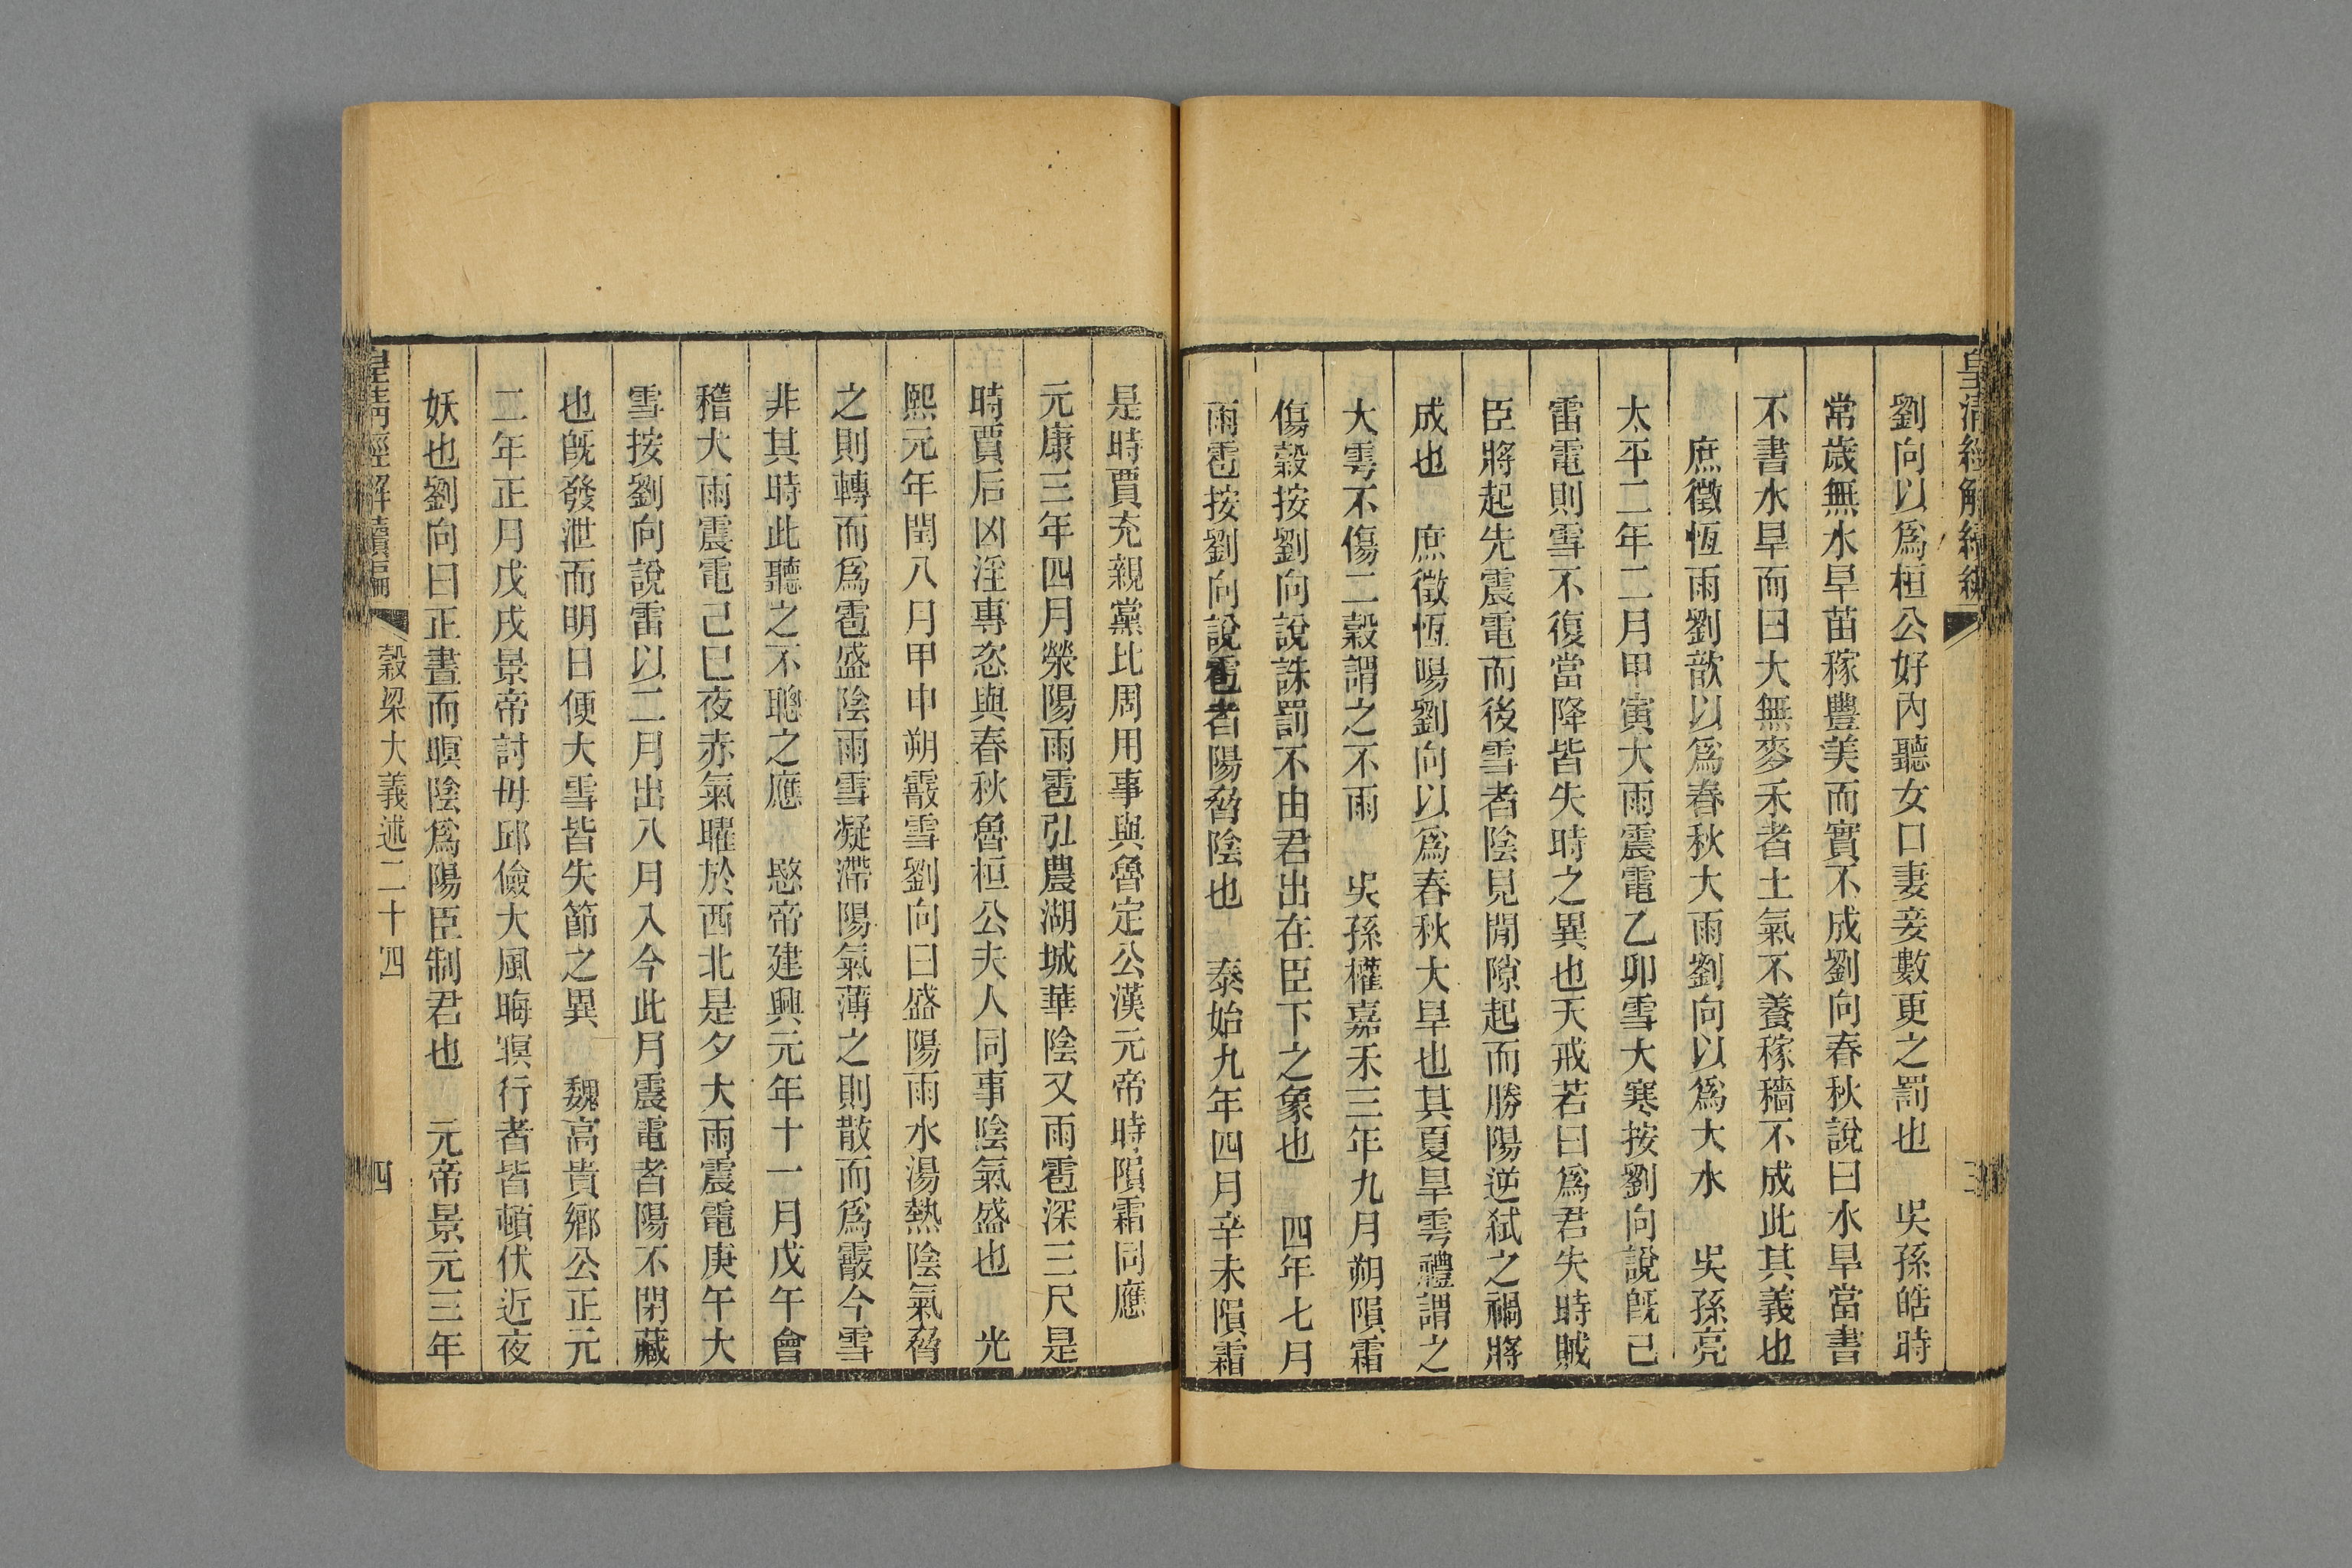 皇清經解續編
劉向以爲桓公好內聽女口妻妾數更之罰也　吳孫皓時
常歲無水旱苗稼豐美而實不成劉向春秋說曰水旱當書
不書水旱而曰大無麥禾者土氣不養稼穡不成此其義也
庶徵恆雨劉歆以爲春秋大雨劉向以爲大水　吳孫亮
太平二年二月甲寅大雨震電乙卯雪大寒按劉向說旣已
雷電則雪不復當降皆失時之異也天戒若曰爲君失時賊
臣將起先震電而後雪者陰見閒隙起而勝陽逆弑之禍將
成也　庶徵恆暘劉向以爲春秋大旱也其夏旱雩禮謂之
大雩不傷二穀謂之不雨　吳孫權嘉禾三年九月朔隕霜
傷穀按劉向說誅罰不由君出在臣下之象也　四年七月
雨雹按劉向說雹者陽脅陰也　泰始九年四月辛未隕霜
是時賈充親黨比周用事與魯定公漢元帝時隕霜同應
元康三年四月滎陽雨雹弘農湖城華陰又雨雹深三尺是
時賈后凶淫專恣與春秋魯桓公夫人同事陰氣盛也　光
熙元年閏八月甲申朔霰雪劉向曰盛陽雨水湯熱陰氣脅
之則轉而爲雹盛陰雨雪凝滯陽氣薄之則散而爲霰今雪
非其時此聽之不聰之應　愍帝建興元年十一月戊午會
稽大雨震電己巳夜赤氣曜於西北是夕大雨震電庚午大
雪按劉向說雷以二月出八月入今此月震電者陽不閉藏
也旣發泄而明日便大雪皆失節之異　魏高貴鄉公正元
二年正月戊戌景帝討毋邱儉大風晦暝行者皆頓伏近夜
妖也劉向曰正晝而暝陰爲陽臣制君也　元帝景元三年
皇淸經解續編　穀梁大義述二十四　四